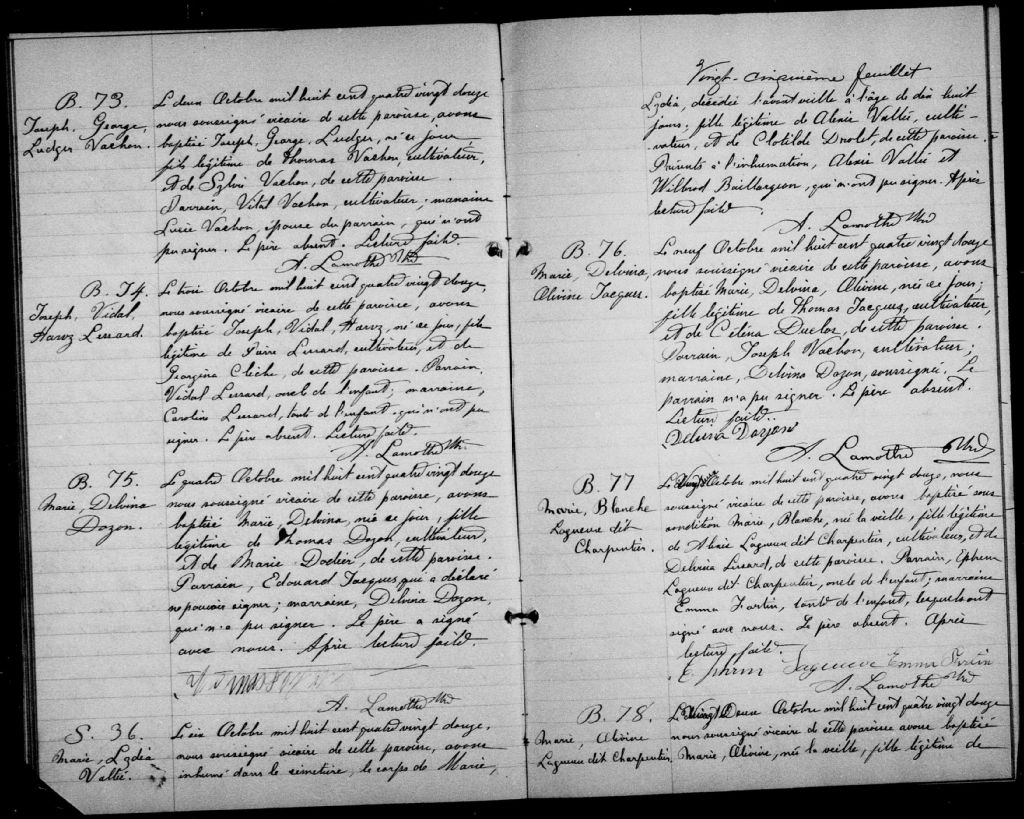 B. 73.
Joseph, George,
Ludger Vachon.
Le deux Octobre mil huit cent quatre vingt douze
nous soussigné vicaire de cette paroisse, avons
baptisé Joseph, George, Ludger, né ce jour
fils légitime de Thomas Vachon, cultivateur,
et de Sylvie Vachon, de cette paroisse.
Parrain, Vital Vachon, cultivateur; marraine
Lucie Vachon, épouse du parrain, qui n'ont
pu signer. Le père absent. Lecture faite.
A. Lamothe Ptre
B. 74.
Joseph, Vidal,
Léssard.
Le trois Octobre mil huit cent quatre vingt douze,
nous soussigné vicaire de cette paroisse, avons
baptisé Joseph, Vidal, né ce jour, fils
légitime de Pierre Lessard, cultivateur, et de
Georgina Cliche, de cette paroisse. Parrain,
Vidal Lessard, oncle de l'enfant; marraine,
Caroline Lessard, tante de l'enfant qui n'ont pu
signer. Le père absent. Lecture faite.
A. Lamothe Ptre.
B. 75.
Marie, Delvina
Dozon.
Le quatre Octobre mil huit cent quatre vingt douze
nous soussigné vicaire de cette paroisse, avons
baptisé Marie, Delvina, née ce jour, fille
légitime de Thomas Dozon, cultivateur,
et de Marie de cette paroisse.
Parrain, Edouard Jacques qui a déclaré
ne pouvoir signer; marraine, Delvina Dozon,
qui n'a pu signer. Le père a signé
avec nous. Après lecture faite.
A. Lamothe Ptre
S. 36.
Marie, Lydia
Vallée.
Le six Octobre mil huit cent quatre vingt douze,
nous soussigné vicaire de cette paroisse, avons
inhumé dans le cimetière, le corps de Marie,
Vingt-cinquième feuillet
Lydia, décédée l'avant veille à l'âge de dix huit
jours, fille légitime de Alexis Vallée, culti-
vateur, et de Clotilde Drolet, de cette paroisse.
Présents à l'inhumation, Alexis Vallée et
Wilbrod Baillargeon, qui n'ont pu signer. Après
lecture faite.
A. Lamothe Ptre
B. 76.
Marie, Delvina,
Alvine Jacques.
Le neuf Octobre mil huit cent quatre vingt douze
nous soussigné vicaire de cette paroisse, avons
baptisé Marie, Delvina, Alvine, née ce jour;
fille légitime de Thomas Jacques, cultivateur,
et de Célina Duclos, de cette paroisse.
Parrain, Joseph Vachon, cultivateur;
marraine, Delvina Dozon, soussignée. Le
parrain n'a pu signer. Le père absent.
Lecture faite.
Delvina Dozon
A. Lamothe Ptre
B. 77
Marie, Blanche
Lagueux dit
Charpentier.
Le Octobre mil huit cent quatre vingt douze, nous
soussigné vicaire de cette paroisse, avons baptisé sous
condition Marie, Blanche, née la veille, fille légitime
de Alexis Lagueux dit Charpentier, cultivateur, et de
Delvina Lessard, de cette paroisse. Parrain, Ephrem
Lagueux dit Charpentier, oncle de l'enfant; marraine
Emma Fortin, tante de l'enfant, lesquels ont
signé avec nous. Le père absent. Après
lecture faite.
Ephrem Lagueux Emma Fortin
A. Lamothe Ptre
B. 78.
Marie, Alvine
Lagueux dit Charpentier.
Le Octobre mil huit cent quatre vingt douze
nous soussigné vicaire de cette paroisse avons baptisé
Marie, Alvine, née la veille, fille légitime de